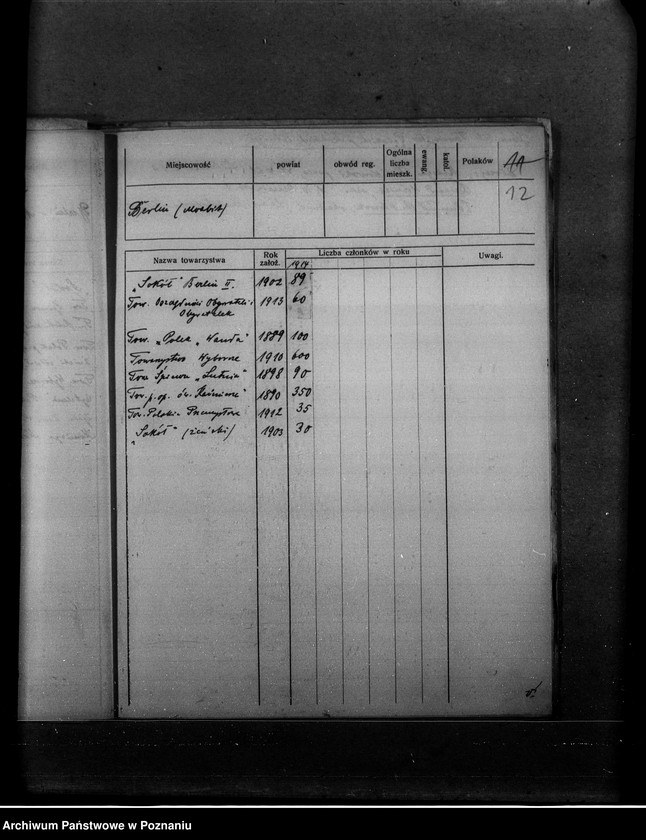 Miejscowość powiat obwód reg. Ogólna liczba mieszk. ewang. katol. Polaków 11
12
Berlin (Moabit)
Nazwa towarzystwa Rok założ. Liczba członków w roku Uwagi.
1914
"Sokół" Berlin II. 1902 89
Tow. Oszczędności Obywateli i 1913 60
Obywatelek
Tow. "Polek "Wanda" 1889 100
Towarzystwo Wyborcze 1910 600
Tow. Śpiewu "Lutnia" 1898 90
Tow. p. op. św. Kazimierza 1890 350
Tow. Polsko-Przemysłowe 1912 35
"Sokół" (żeński) 1903 30
Archiwum Państwowe w Poznaniu